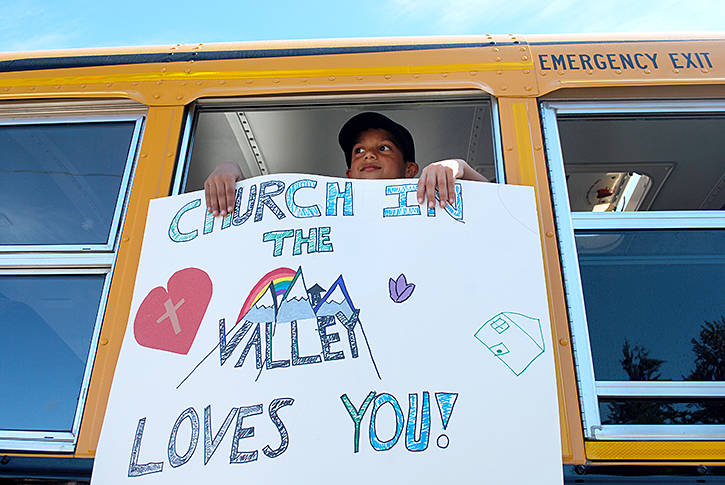 EMERGENCY EXIT
CHURCH IN
THE
VALLEY
LOVES YOU!